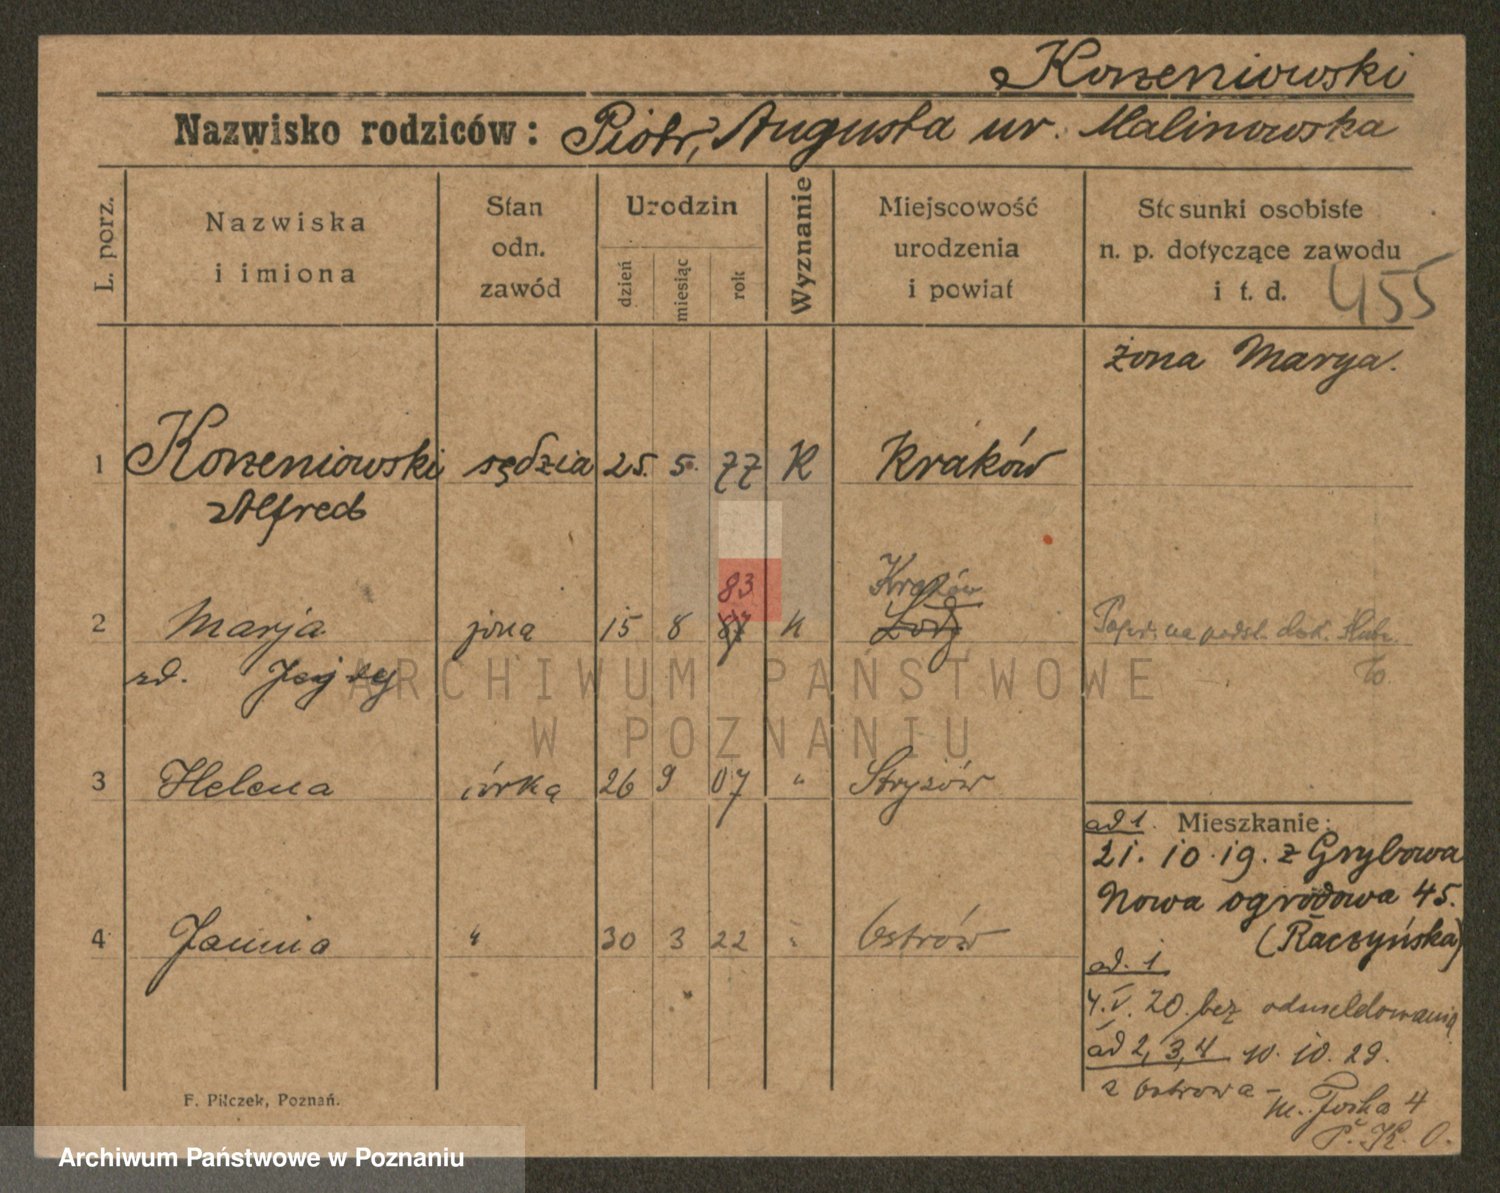 Korzeniowski
Nazwisko rodziców: Piotr, Augusta ur. Malinowska
L. porz.
Nazwiska
i imiona
Stan
odn.
zawód
Urodzin
dzień
miesiąc
rok
Wyznanie
Miejscowość
urodzenia
i powiat
Stosunki osobiste
n. p. dotyczące zawodu
i t. d.
455
żona Marya.
1 Korzeniowski sędzia 25. 5. 77 K Kraków
Alfred
83 Kraków
2 Marja żona 15 8 87 K Łódź
zd.
3 Helena córka 26 9 07 " Stryżów
4 Janina " 30 3 22 " Ostrów
ad 1. Mieszkanie:
21. 10. 19. z Grybowa
Nowa ogrodowa 45.
(Raczyńska)
ad. 1
4. V. 20. bez odmeldowania
ad 2, 3, 4 10. 10. 29.
z Ostrowa -
m. Focha 4
P. K. O.
F. Pilczek, Poznań.
ARCHIWUM PAŃSTWOWE
W POZNANIU
Archiwum Państwowe w Poznaniu